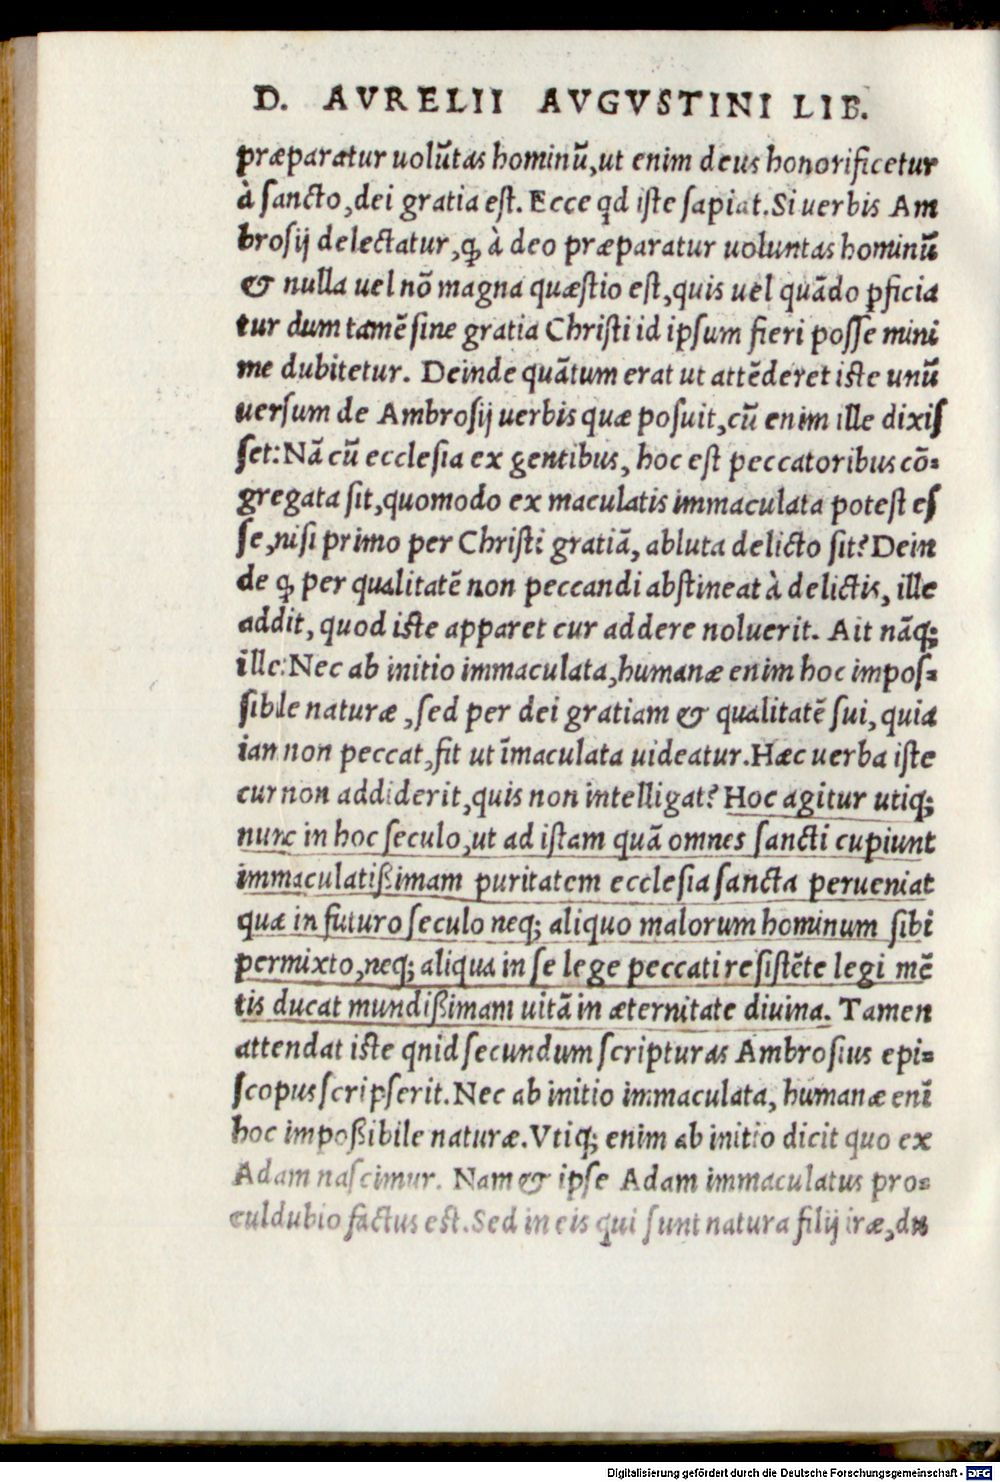 D. AVRELII AVGVSTINI LIB.
præparatur uolũtas hominũ,ut enim deus honorificetur
à sancto,dei gratia est. Ecce qd iste sapiat.Si uerbis Am
brosij delectatur,ꝙ à deo præparatur uoluntas hominũ
& nulla uel nõ magna quæstio est,quis uel quãdo ꝓficia
tur dum tamẽ sine gratia Christi id ipsum fieri posse mini
me dubitetur. Deinde quãtum erat ut attẽderet iste unũ
uersum de Ambrosij uerbis quæ posuit,cũ enim ille dixis
set:Nã cũ ecclesia ex gentibus, hoc est peccatoribus cõ-
gregata sit,quomodo ex maculatis immaculata potest es
se,nisi primo per Christi gratiã, abluta delicto sit?Dein
de ꝙ per qualitatẽ non peccandi abstineat à delictis, ille
addit, quod iste apparet cur addere noluerit. Ait nãq;
ille:Nec ab initio immaculata,humanæ enim hoc impos-
sibile naturæ ,sed per dei gratiam & qualitatẽ sui, quia
iam non peccat,fit ut ĩmaculata uideatur.Hæc uerba iste
cur non addiderit,quis non intelligat? Hoc agitur utiq;
nunc in hoc seculo,ut ad istam quã omnes sancti cupiunt
immaculatißimam puritatem ecclesia sancta perueniat
quæ in futuro seculo neq; aliquo malorum hominum sibi
permixto,neq; aliqua in se lege peccati resistẽte legi mẽ
tis ducat mundißimam uitã in æternitate diuina. Tamen
attendat iste qnid secundum scripturas Ambrosius epi-
scopus scripserit.Nec ab initio immaculata, humanæ enĩ
hoc impoßibile naturæ.Vtiq; enim ab initio dicit quo ex
Adam nascimur. Nam & ipse Adam immaculatus pro-
culdubio factus est.Sed in eis qui sunt natura filij iræ,du
Digitalisierung gefördert durch die Deutsche Forschungsgemeinschaft - DFG